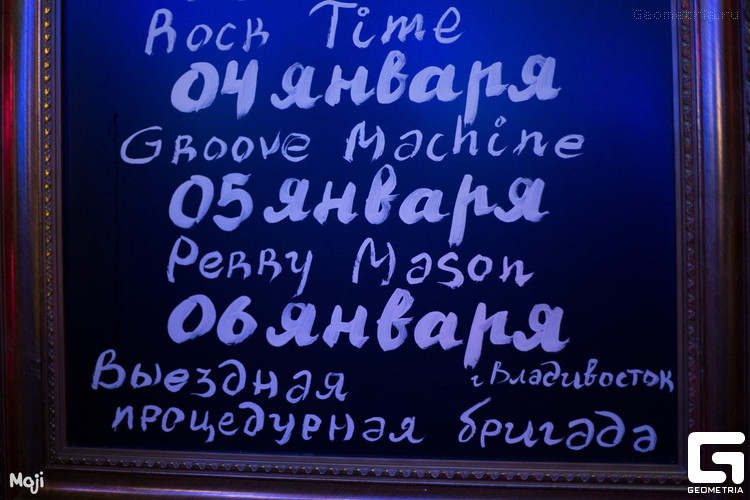 Rock Time
Geometria.ru
04 января
Groove Machine
05 января
Perry Mason
06 января
Выездная г. Владивосток
процедурная бригада
Moji
GEOMETRIA